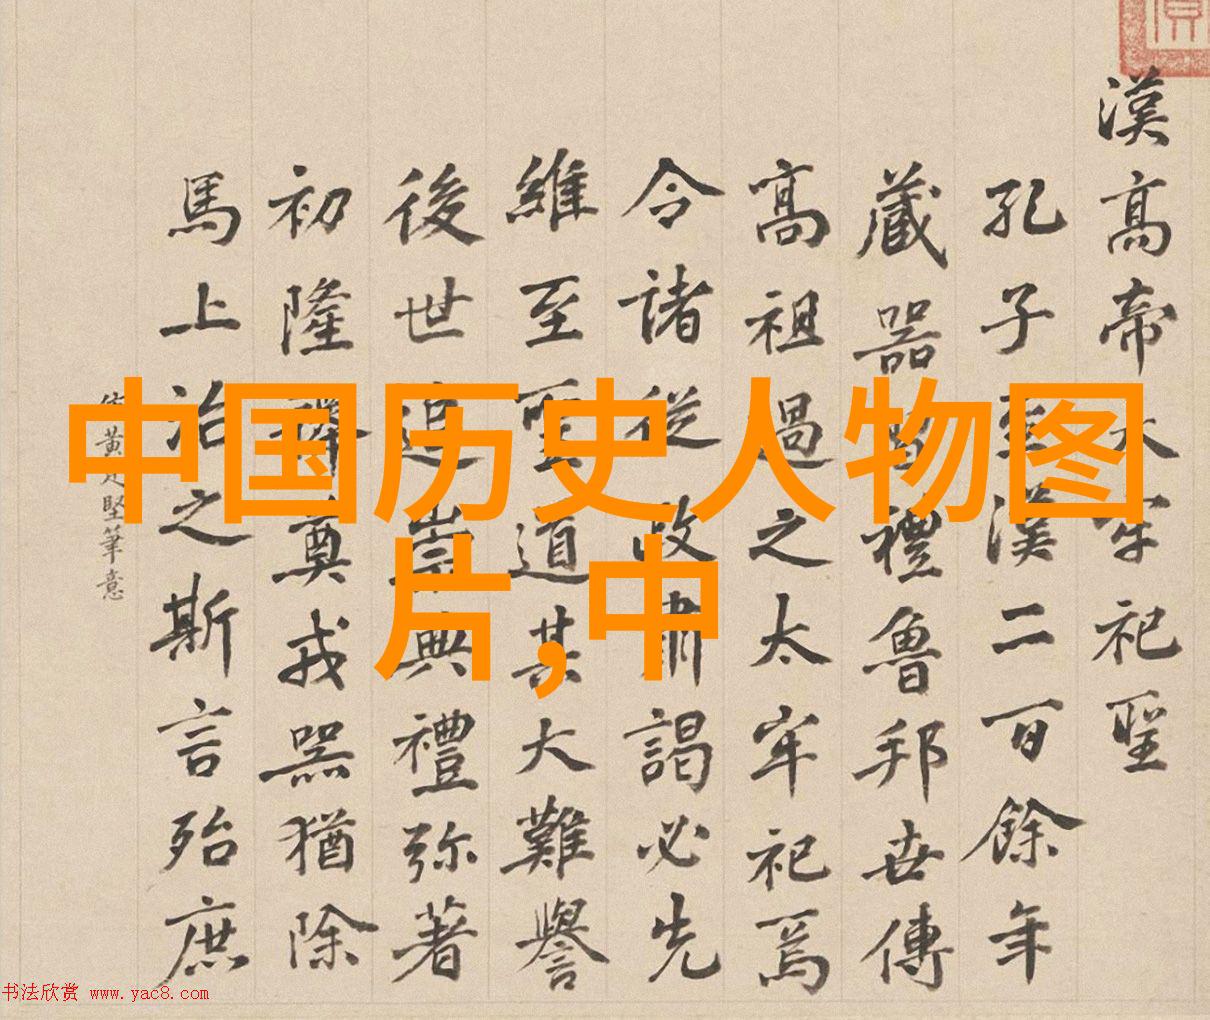 漢高帝太牢祀聖
孔子至漢二百餘年
藏器禮魯邦世傳
高祖過之太牢祀焉
令諸從政肅謁必先
維至聖道其大難譽
後世追崇典禮弥著
初隆釋奠戎器猶除
馬上治之斯言殆庶
黄庭堅筆意
中国历史人物图
片,中
书法欣赏 www.yac8.com